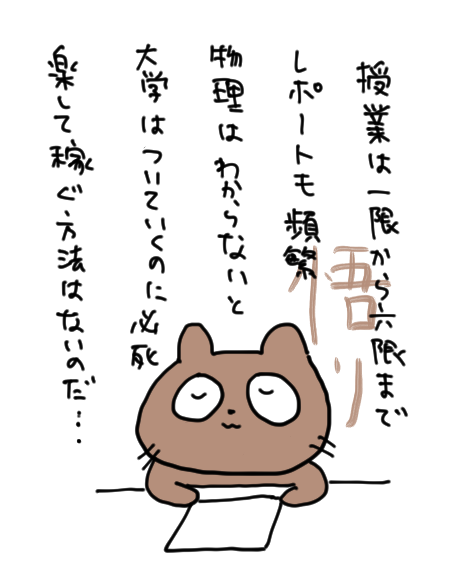 授業は一限から六限まで
レポートも頻繁
物理はわからないと
大学はついていくのに必死
楽して稼ぐ方法はないのだ…
悟り